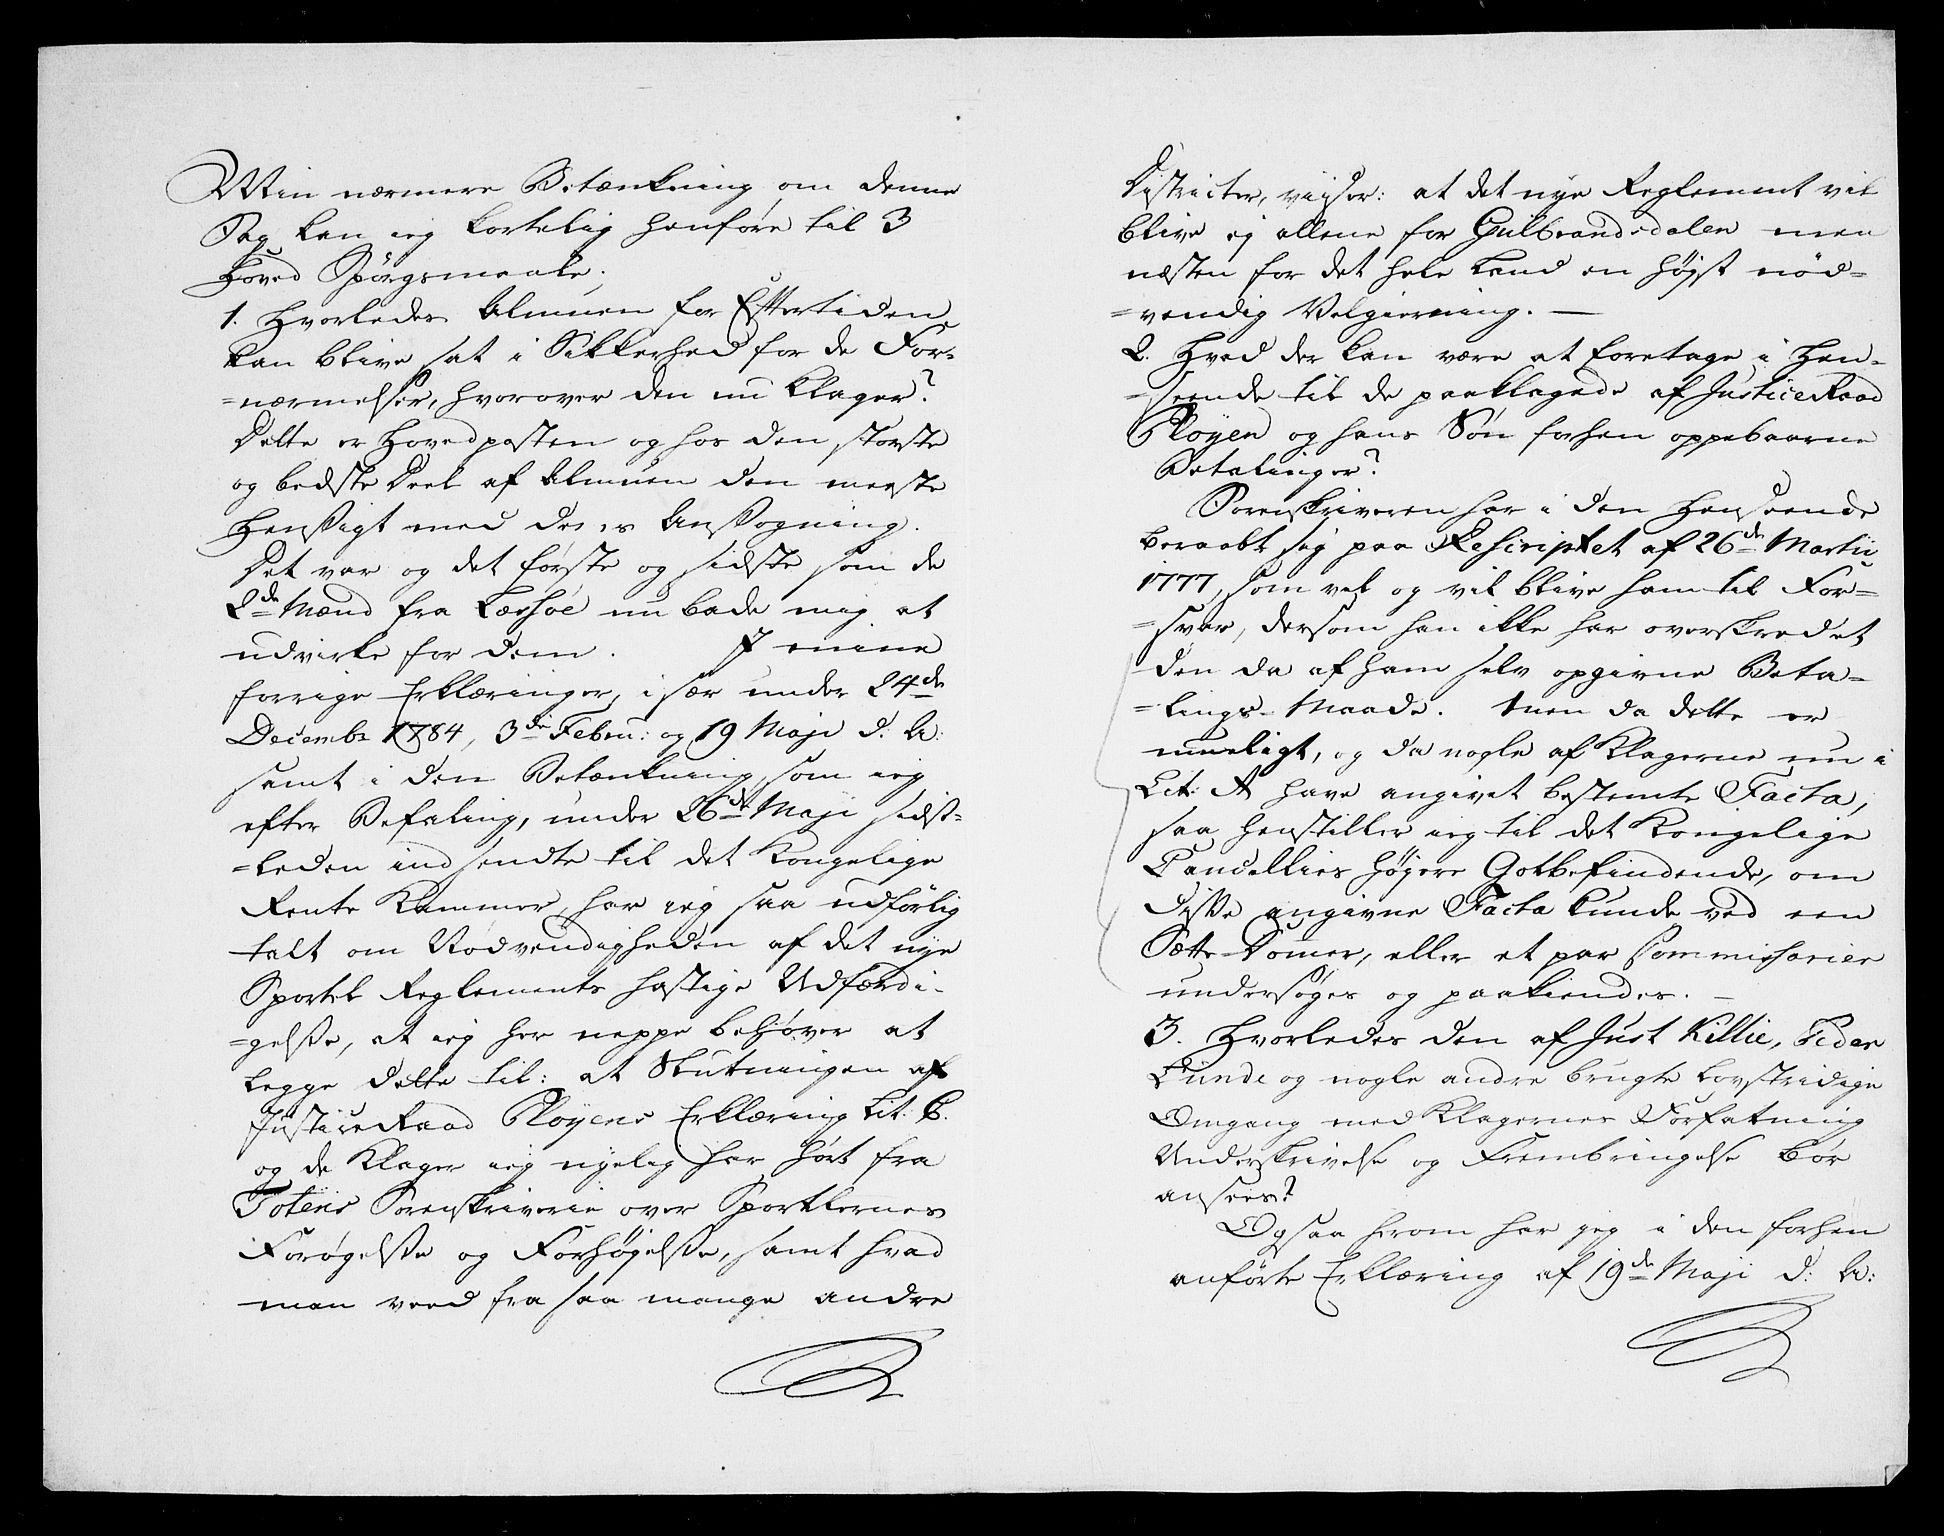 Min nærmere Betænkning om denne
Sag kan ieg kortelig henføre til 3
Hoved Spørgsmaale;
1. Hvorledes Almuen for Eftertiden
kan blive sat i Sikkerhed for de For-
=nærmelser, hvorover den nu klager?
Dette er Hovedposten og hos den største
og bedste Deel af Almuen den meeste
Hensigt med deres Ansøgning.
Det var og det første og sidste som de
2de Mænd fra Lessøe nu bade mig at
udvirke for dem. I mine
forrige Erklæringer, i sær under 24de
Decembr 1784, 3de Febru: og 19 Maji d. A:
samt i den Betænkning som ieg
efter Befaling, under 26de Maji sidst-
=leden indsendte til det Kongelige
Rente Kammer, har ieg saa udførlig
talt om Nødvendigheden af det nye
Sportel Reglements hastige Udfærdi-
=gelse, at ieg her neppe behøver at
legge dette til: at Slutningen af
Justice Raad Pløyens Erklæring Lit: B.
og de Klager ieg nyelig har hørt fra
Totens Sorenskriverie over Sportlernes
Forøgelse og Forhøjelse, samt hvad
man veed fra saa mange andre
Districter, viiser: at det nye Reglement vil
blive ej allene for Gulbrandsdalen men
næsten for det hele Land en højst nød=
=vendig Velgierning. —
2. Hvad der kan være at foretage i Hen-
=seende til de paaklagede af Justice Raad
Pløyen og hans Søn forhen oppebaarne
Betalinger?
Sorenskriveren har i den Henseende
beraabt sig paa Rescriptet af 26de Martii
1777, som vel og vil blive ham til For=
=svar, dersom han ikke har overskredet
den da af ham selv opgivne Beta=
=lings-Maade. Men da dette er
mueligt, og da nogle af Klagerne nu i
Lit: A have angivet bestemte Facta,
saa henstiller ieg til det Kongelige
Cancellies højere Gotbefindende, om
disse angivne Facta kunde ved een
Sætte-Dommer, eller et par Commissarier
undersøges og paakiendes. —
3. Hvorledes den af Just Killie, Peder
Lunde og nogle andre brugte lovstridige
Omgang med Klagernes Forfatning
Underskrivelse og Frembringelse bør
ansees?
Ogsaa herom har jeg i den forhen
anførte Erklæring af 19de Maji d: A: